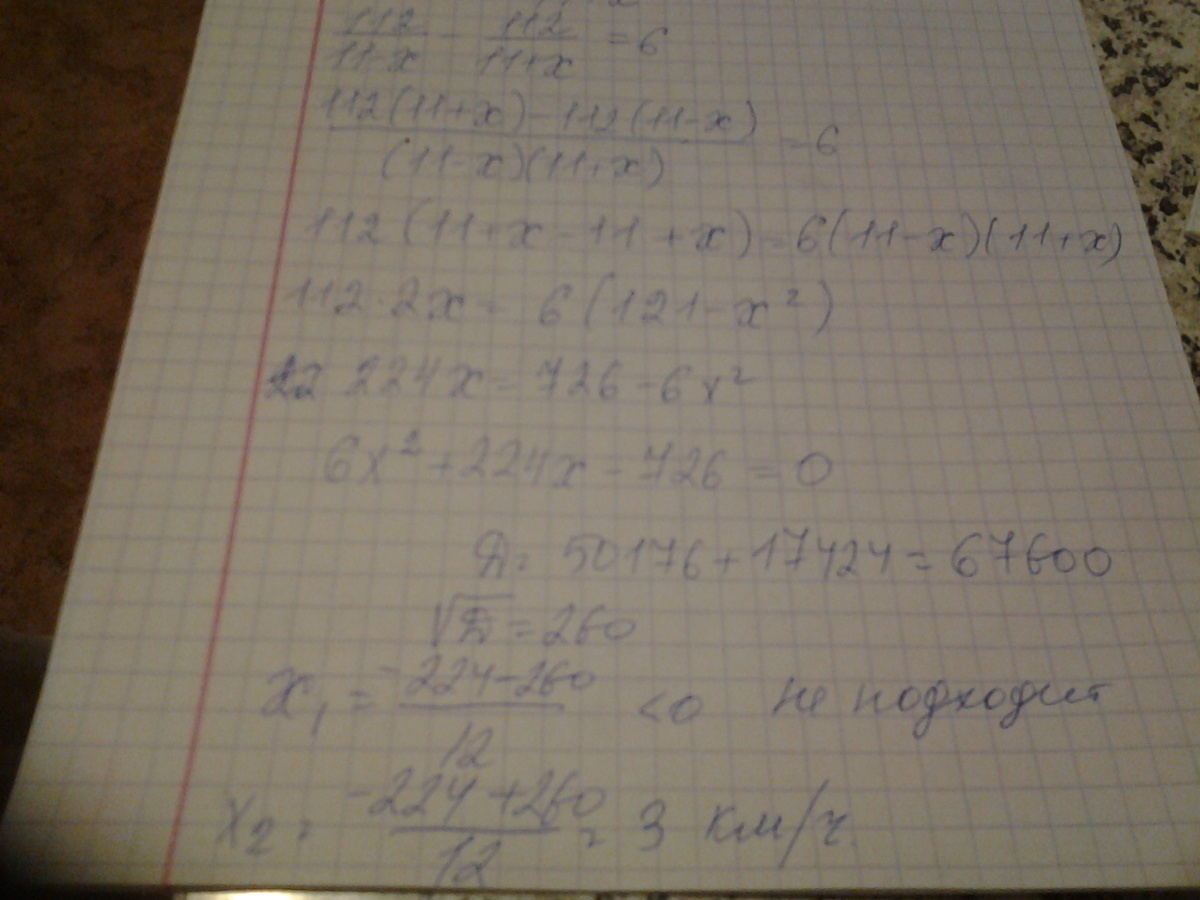 112/11-x - 112/11+x = 6
112(11+x)-112(11-x)/(11-x)(11+x) = 6
112(11+x-11+x)=6(11-x)(11+x)
112·2x= 6(121-x²)
224x=726-6x²
6x²+224x-726=0
D= 50176+17424=67600
√D=260
x₁= -224-260/12 <0 не подходит
x₂= -224+260/12 = 3 км/ч.